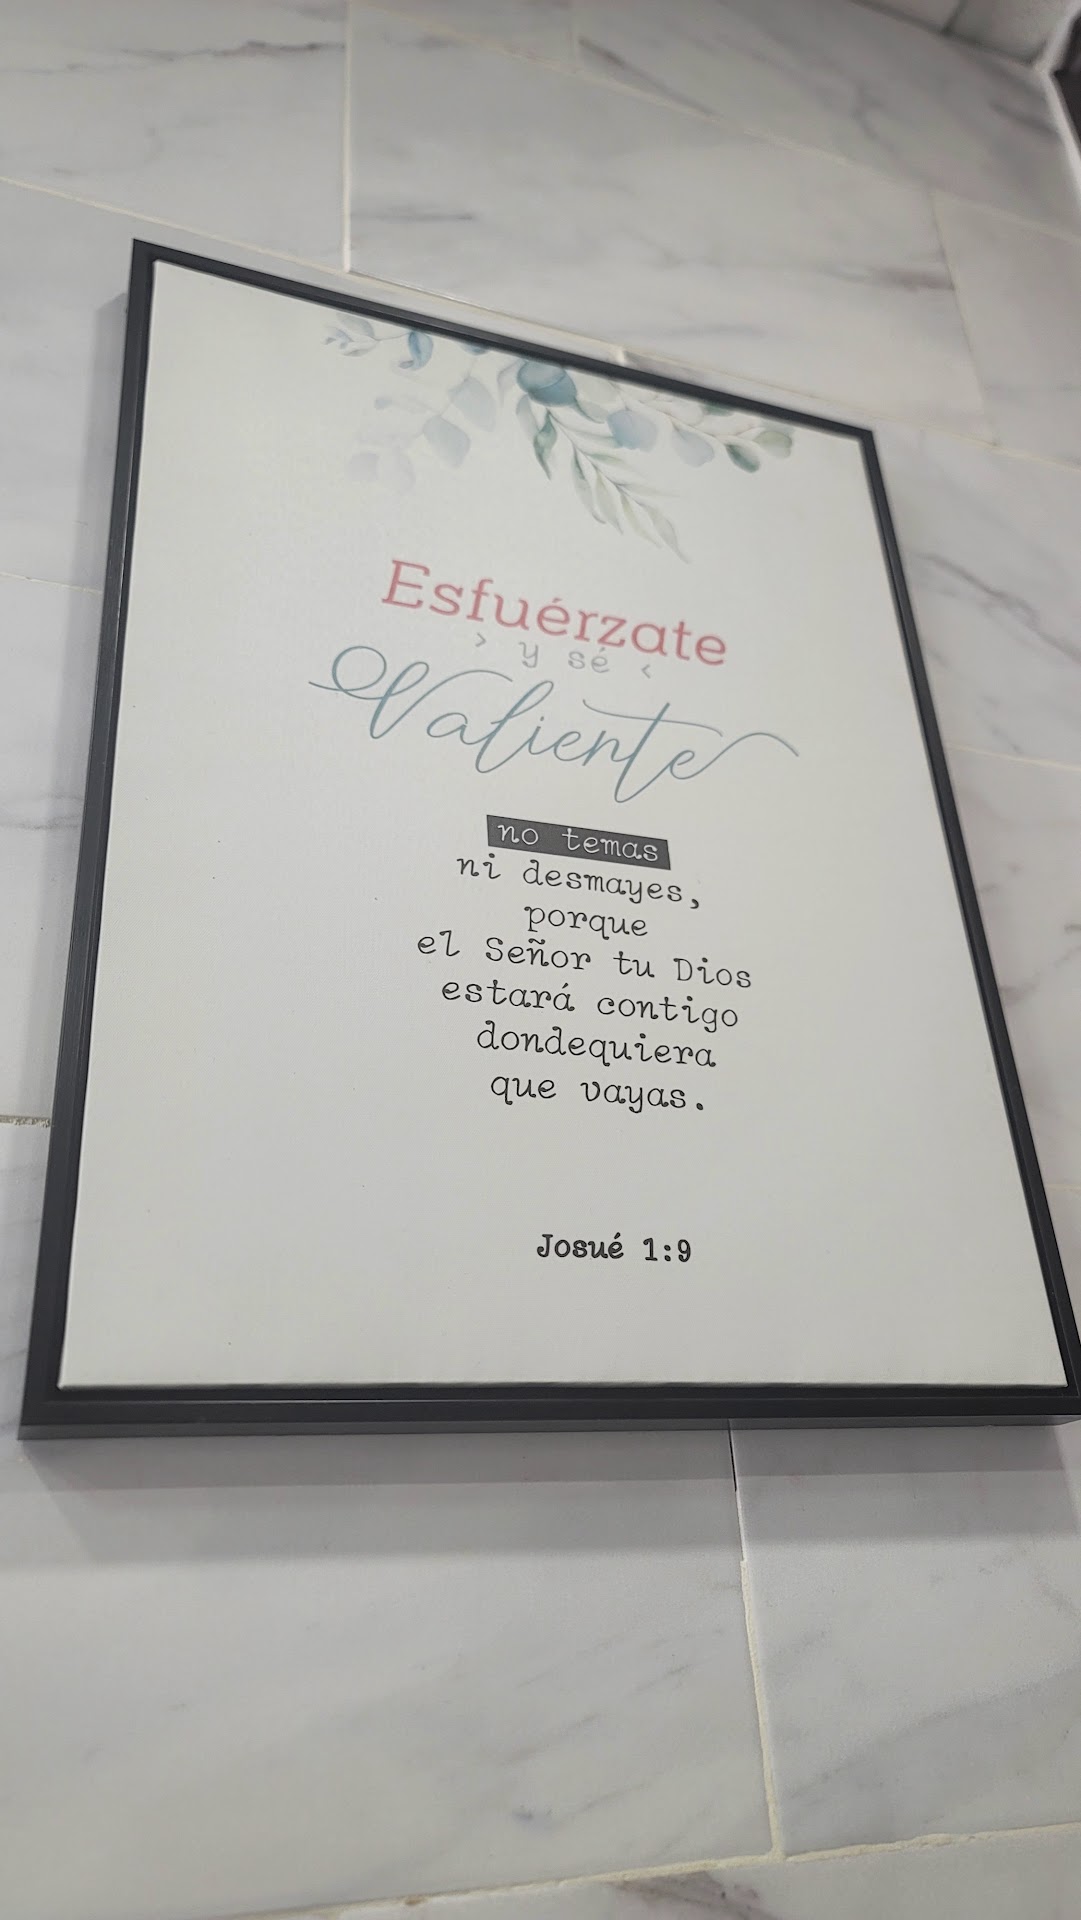 Esfuérzate
> y sé <
Valiente
no temas
ni desmayes,
porque
el Señor tu Dios
estará contigo
dondequiera
que vayas.
Josué 1:9